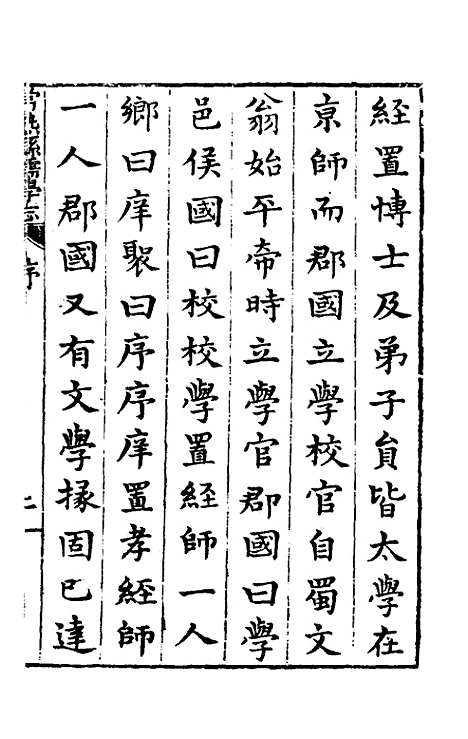 經置博士及弟子員皆太學在
亰師而郡國立學校官自蜀文
翁始平帝時立學官郡國曰學
邑侯國曰校校學置經師一人
鄉曰庠聚曰序序庠置孝經師
一人郡國又有文學掾固已達
常熟縣儒學志 序 二